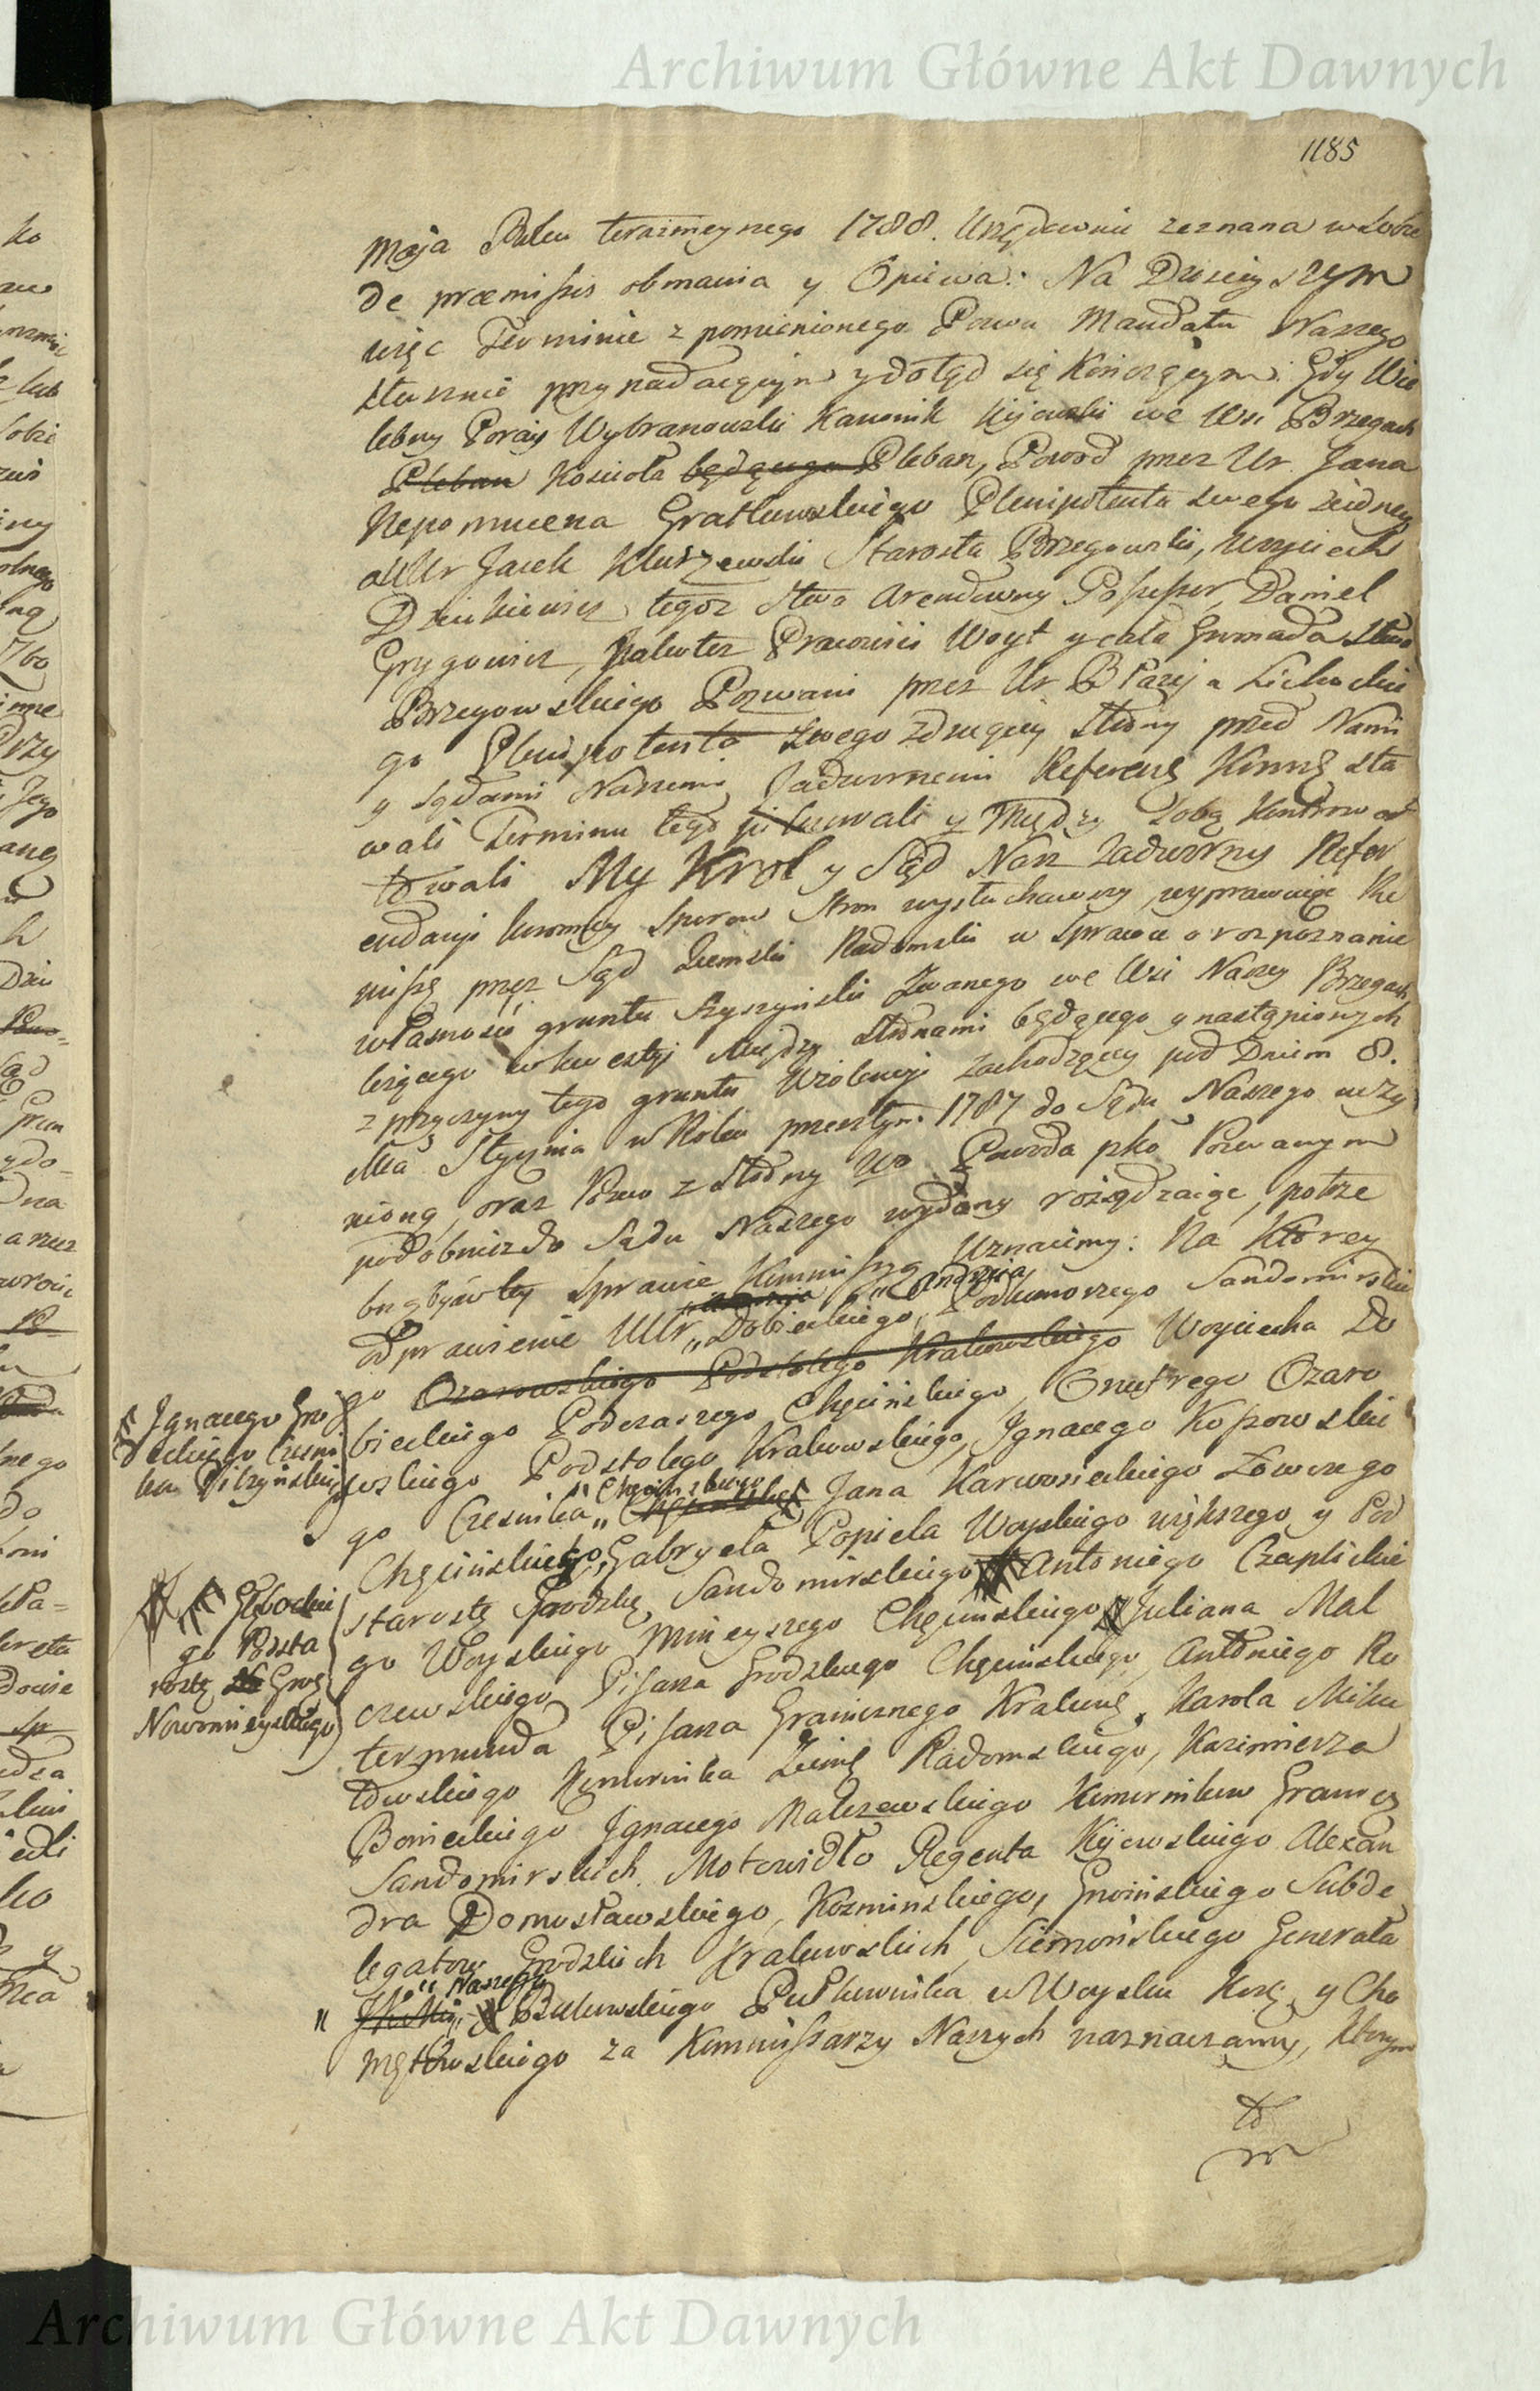 Archiwum Główne Akt Dawnych
1185
Maja Roku teraznieyszego 1788. Urzędownie zeznana w sobie
de præmissis obmawia y Opiewa: Na Dzisieyszym
więc Terminie z pomienionego Pozwu Mandatu Naszego
słusznie przypadaiącym y dotąd się Kończącym: Gdy Wie
lebny Poray Wybranowski Kanonik Kijowski we Wsi Brzegach
Pleban Kościoła będącego Pleban, Powod przez Ur. Jana
Nepomucena Gratkowskiego Plenipotenta swego zeidney
a WUr Jacek Kluszewski Starosta Brzegowski, Woyciech
tegoz Stwa Arendowny Possessor, Daniel
Grygowicz, Woyt y cała Gromada Stwa
Brzegowskiego Pozwani przez Ur Błażeja Lichockie
go Plenipotenta swego zdrugiey strony przed Nami
y Sądami Naszemi Zadwornemi Referend Koronne sta
wali Terminu tego pilnowali y Między Sobą Kontrower
towali My Krol y Sąd Nasz Zadworny Refer
endarji koronney Sporow Stron wysłuchawszy, wyprawuiąc Re
missę przez Sąd Ziemski Radomski w Sprawie o rozpoznanie
własności gruntu Szyszyński Zwanego we Wsi Naszey Brzegach
leżącego w kwestyi Między Stronami będącego y nastąpionych
z przyczyny tego gruntu Wiolencyi zachodzącey pod Dniem 8.
Mca Stycznia w Roku przeszłym 1787 do Sądu Naszego uczy
nioną, oraz Pozew z Strony Wo Powoda pko Pozwanym
podobniez do Sądu Naszego wydany rozsądzaiąc, potrze
bną byáw tey Sprawie Kommissyą Uznaiemy: Na Ktorey
odprawienie WUr „Dobieckiego, „Andrzeja Podkomorzego Sandomirskie
go Ozarowskiego Podstolego Krakowskiego Woyciecha Do
bieckiego Podczaszego Chęcińskiego, Onufrego Ozaro
wskiego Podstolego Krakowskiego, Ignacego Kossowskie
go Czesnika „Chęcinskiego Jana Karwosieckiego Łowczego
Chęcińskiego, Gabryela Popiela Woyskiego większego y Pod
starostę Grodzkę Sandomirskiego Antoniego Czaplickie
go Woyskiego Mnieyszego Chęcinskiego Juliana Mal
czewskiego Pisarza Grodzkiego Chęcinskiego, Antoniego Ro
termunda Pisarza Granicznego Krakows, Karola Miku
łowskiego Komornika Ziems Radomskiego, Kazimierza
Bonieckiego Ignacego Malczewskiego Komornikow Granicz
Sandomirskich. Motowidło Regenta Kijowskiego Alexan
dra Domosławskiego, Kozminskiego, Subde
legatow Grodzkich Krakowskich, Siemońskiego Generała
„Naszego Bukowskiego Pułkownika w Woysku Kor y Cho
mętowskiego za Kommissarzy Naszych naznaczamy, Ktorym
Ignacego Gro
deckiego Czesni
ka Pilzyńskieg
Głębockie
go Podsta
rostę Grodz
Nowomieyskiego
Archiwum Główne Akt Dawnych